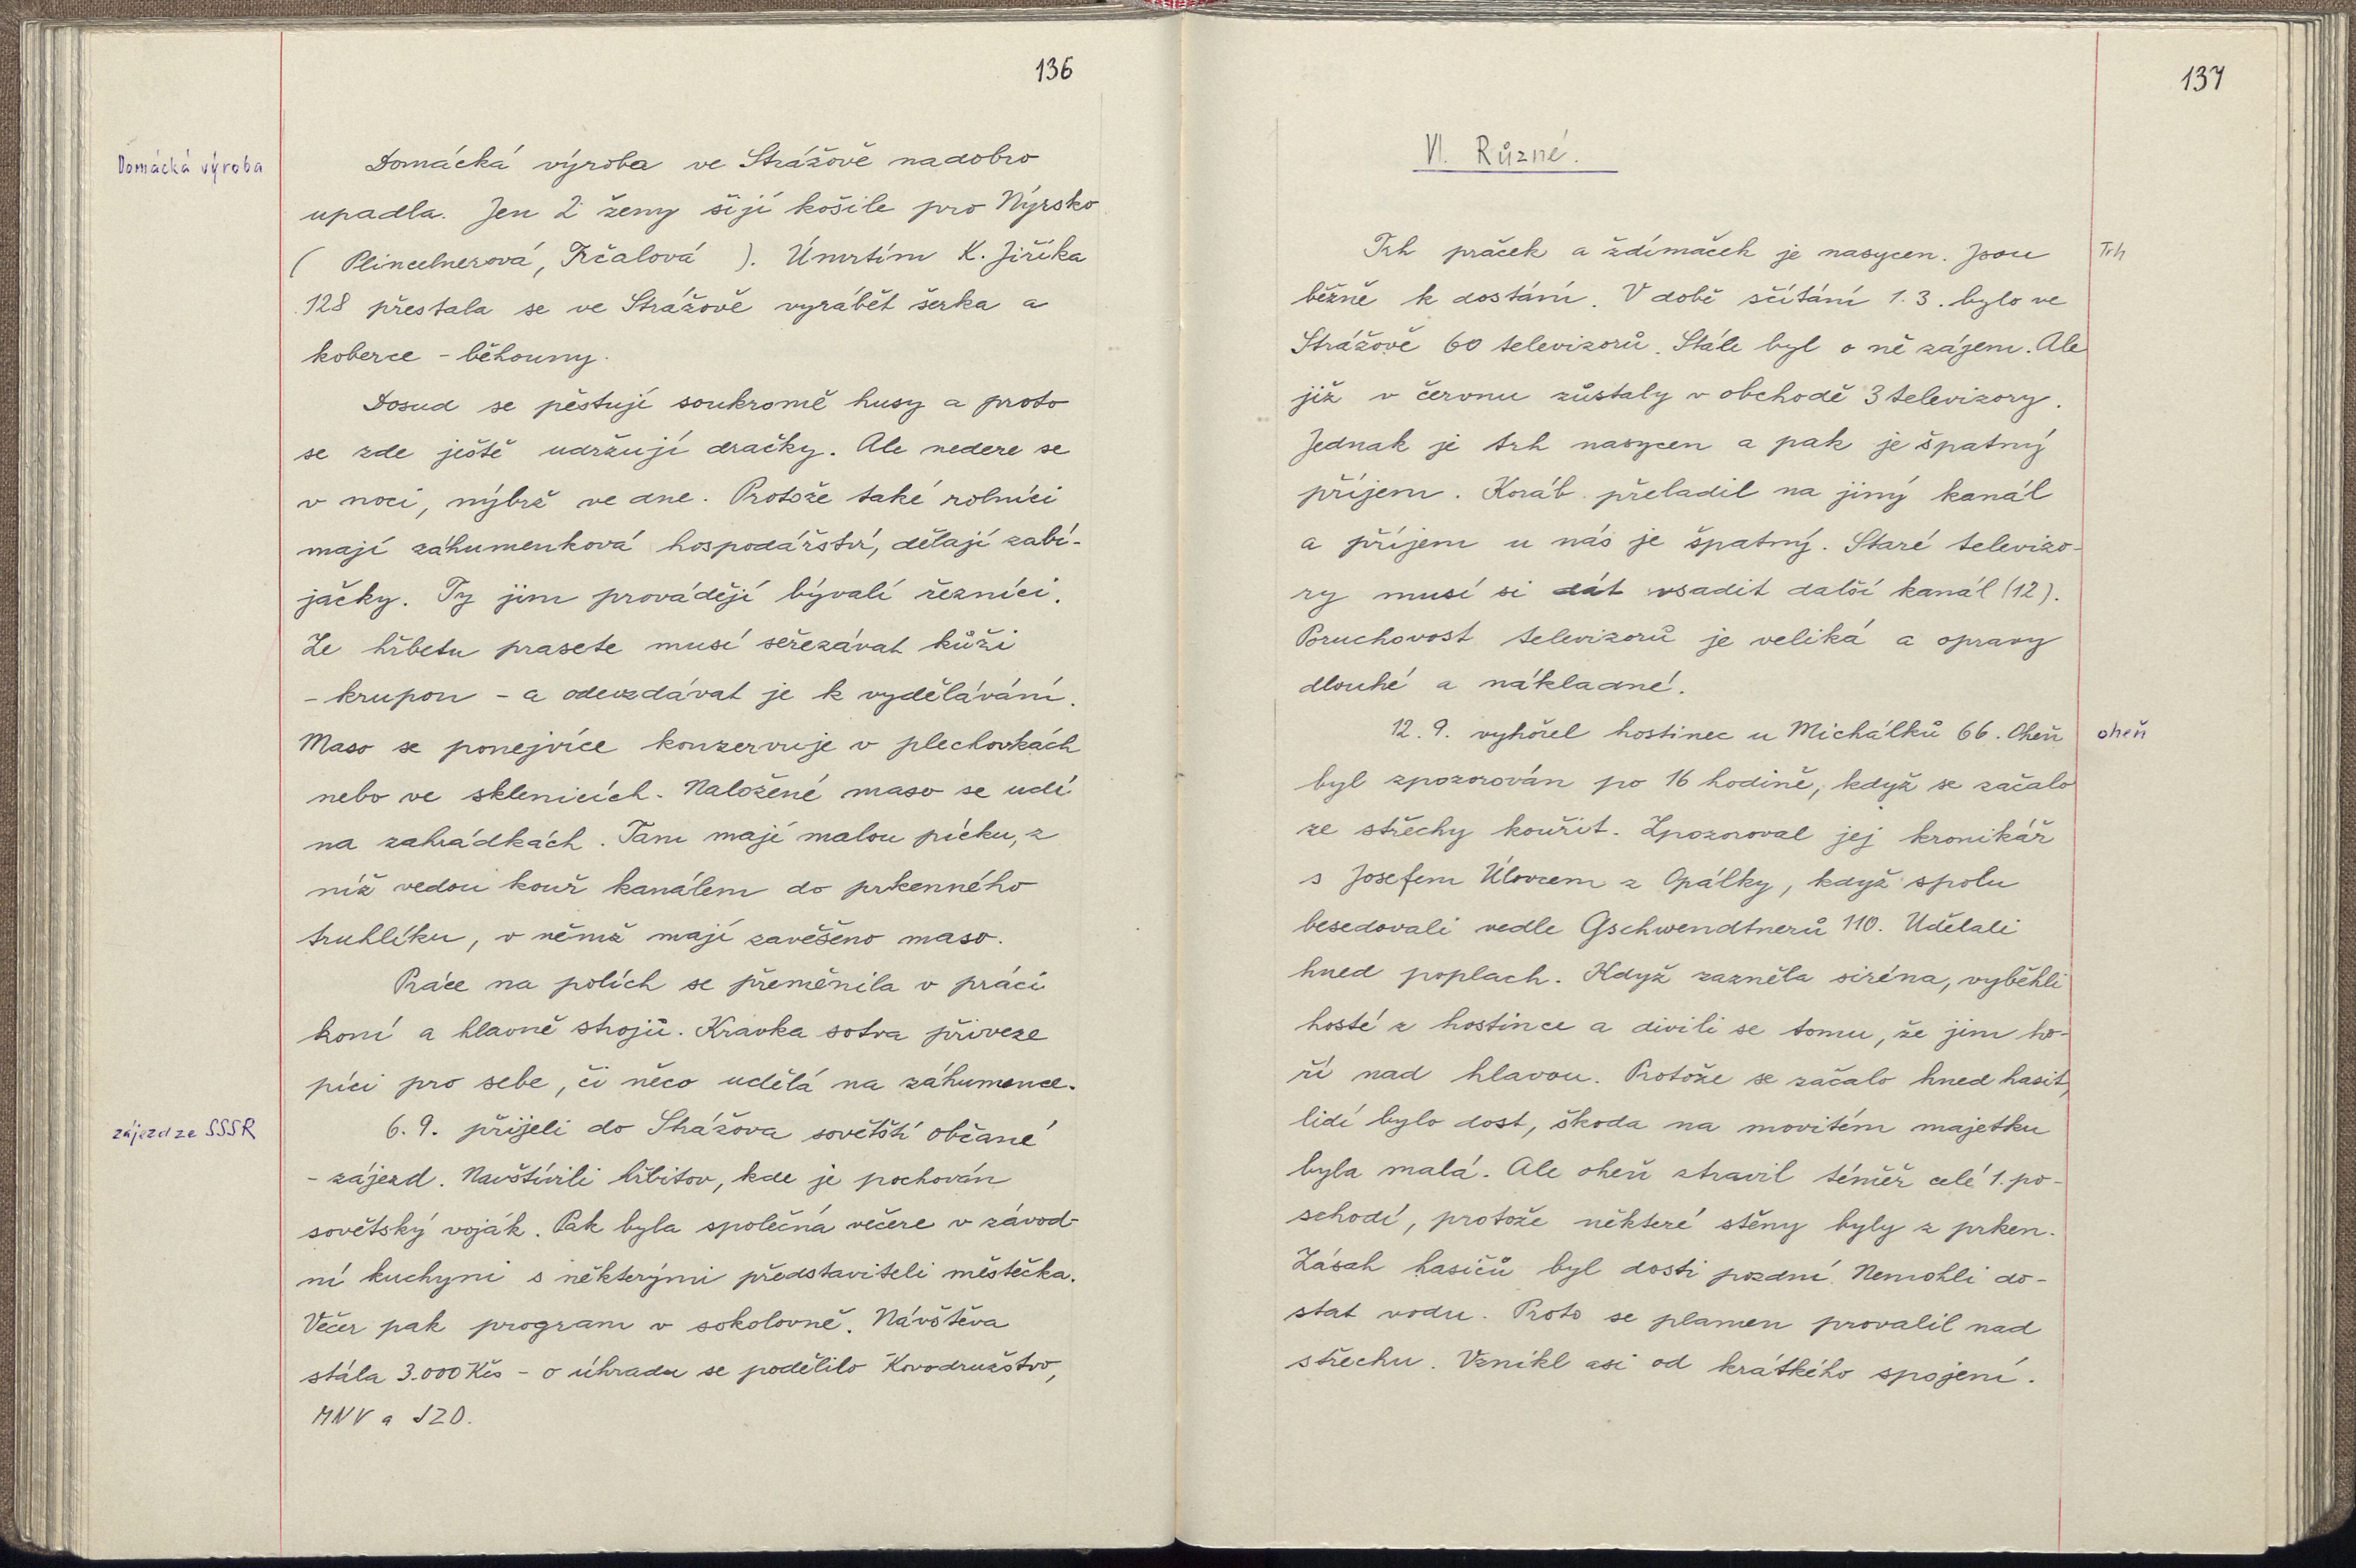 136
Domácká výroba
Domácká výroba ve Strážově nadobro
upadla. Jen 2 ženy šijí košile pro Nýrsko
( Plincelnerová, Trčalová ). Úmrtím K. Jiříka
128 přestala se ve Strážově vyrábět šerka a
koberce - běhouny.
Dosud se pěstují soukromě husy a proto
se zde ještě udržují dračky. Ale nedere se
v noci, nýbrž ve dne. Protože také rolníci
mají záhumenková hospodářství, dělají zabí-
jačky. Ty jim provádějí bývalí řezníci.
Ze hřbetu prasete musí seřezávat kůži
- krupon - a odevzdávat je k vydělávání.
Maso se ponejvíce konzervuje v plechovkách
nebo ve sklenicích. Naložené maso se udí
na zahrádkách. Tam mají malou pícku, z
níž vedou kouř kanálem do prkenného
truhlíku, v němž mají zavěšeno maso.
Práce na polích se přeměnila v práci
koní a hlavně strojů. Kravka sotva přiveze
píci pro sebe, či něco udělá na záhumence.
zájezd ze SSSR
6. 9. přijeli do Strážova sovětští občané
- zájezd. Navštívili hřbitov, kde je pochován
sovětský voják. Pak byla společná večeře v závod-
ní kuchyni s některými představiteli městečka.
Večer pak program v sokolovně. Návštěva
stála 3.000 Kčs - o úhradu se podělilo Kovodružstvo,
MNV a JZD.
137
VI. Různé.
Trh praček a ždímaček je nasycen. Jsou
Trh
běžně k dostání. V době sčítání 1. 3. bylo ve
Strážově 60 televizorů. Stále byl o ně zájem. Ale
již v červnu zůstaly v obchodě 3 televizory.
Jednak je trh nasycen a pak je špatný
příjem. Koráb přeladil na jiný kanál
a příjem u nás je špatný. Staré televizo-
ry musí si dát vsadit další kanál (12).
Poruchovost televizorů je veliká a opravy
dlouhé a nákladné.
12. 9. vyhořel hostinec u Michálků 66. Oheň
oheň
byl zpozorován po 16 hodině, když se začalo
ze střechy kouřit. Zpozoroval jej kronikář
s Josefem Úlovcem z Opálky, když spolu
besedovali vedle Gschwendtnerů 110. Udělali
hned poplach. Když zazněla siréna, vyběhli
hosté z hostince a divili se tomu, že jim ho-
ří nad hlavou. Protože se začalo hned hasit,
lidí bylo dost, škoda na movitém majetku
byla malá. Ale oheň ztravil téměř celé 1. po-
schodí, protože některé stěny byly z prken.
Zásah hasičů byl dosti pozdní. Nemohli do-
stat vodu. Proto se plamen provalil nad
střechu. Vznikl asi od krátkého spojení.